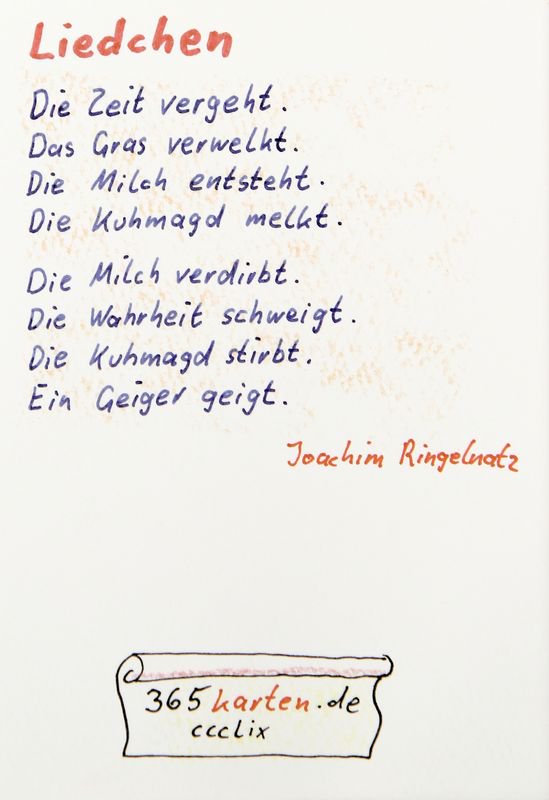 Liedchen
Die Zeit vergeht.
Das Gras verwelkt.
Die Milch entsteht.
Die Kuhmagd melkt.
Die Milch verdirbt.
Die Wahrheit schweigt.
Die Kuhmagd stirbt.
Ein Geiger geigt.
Joachim Ringelnatz
365karten.de
ccclix